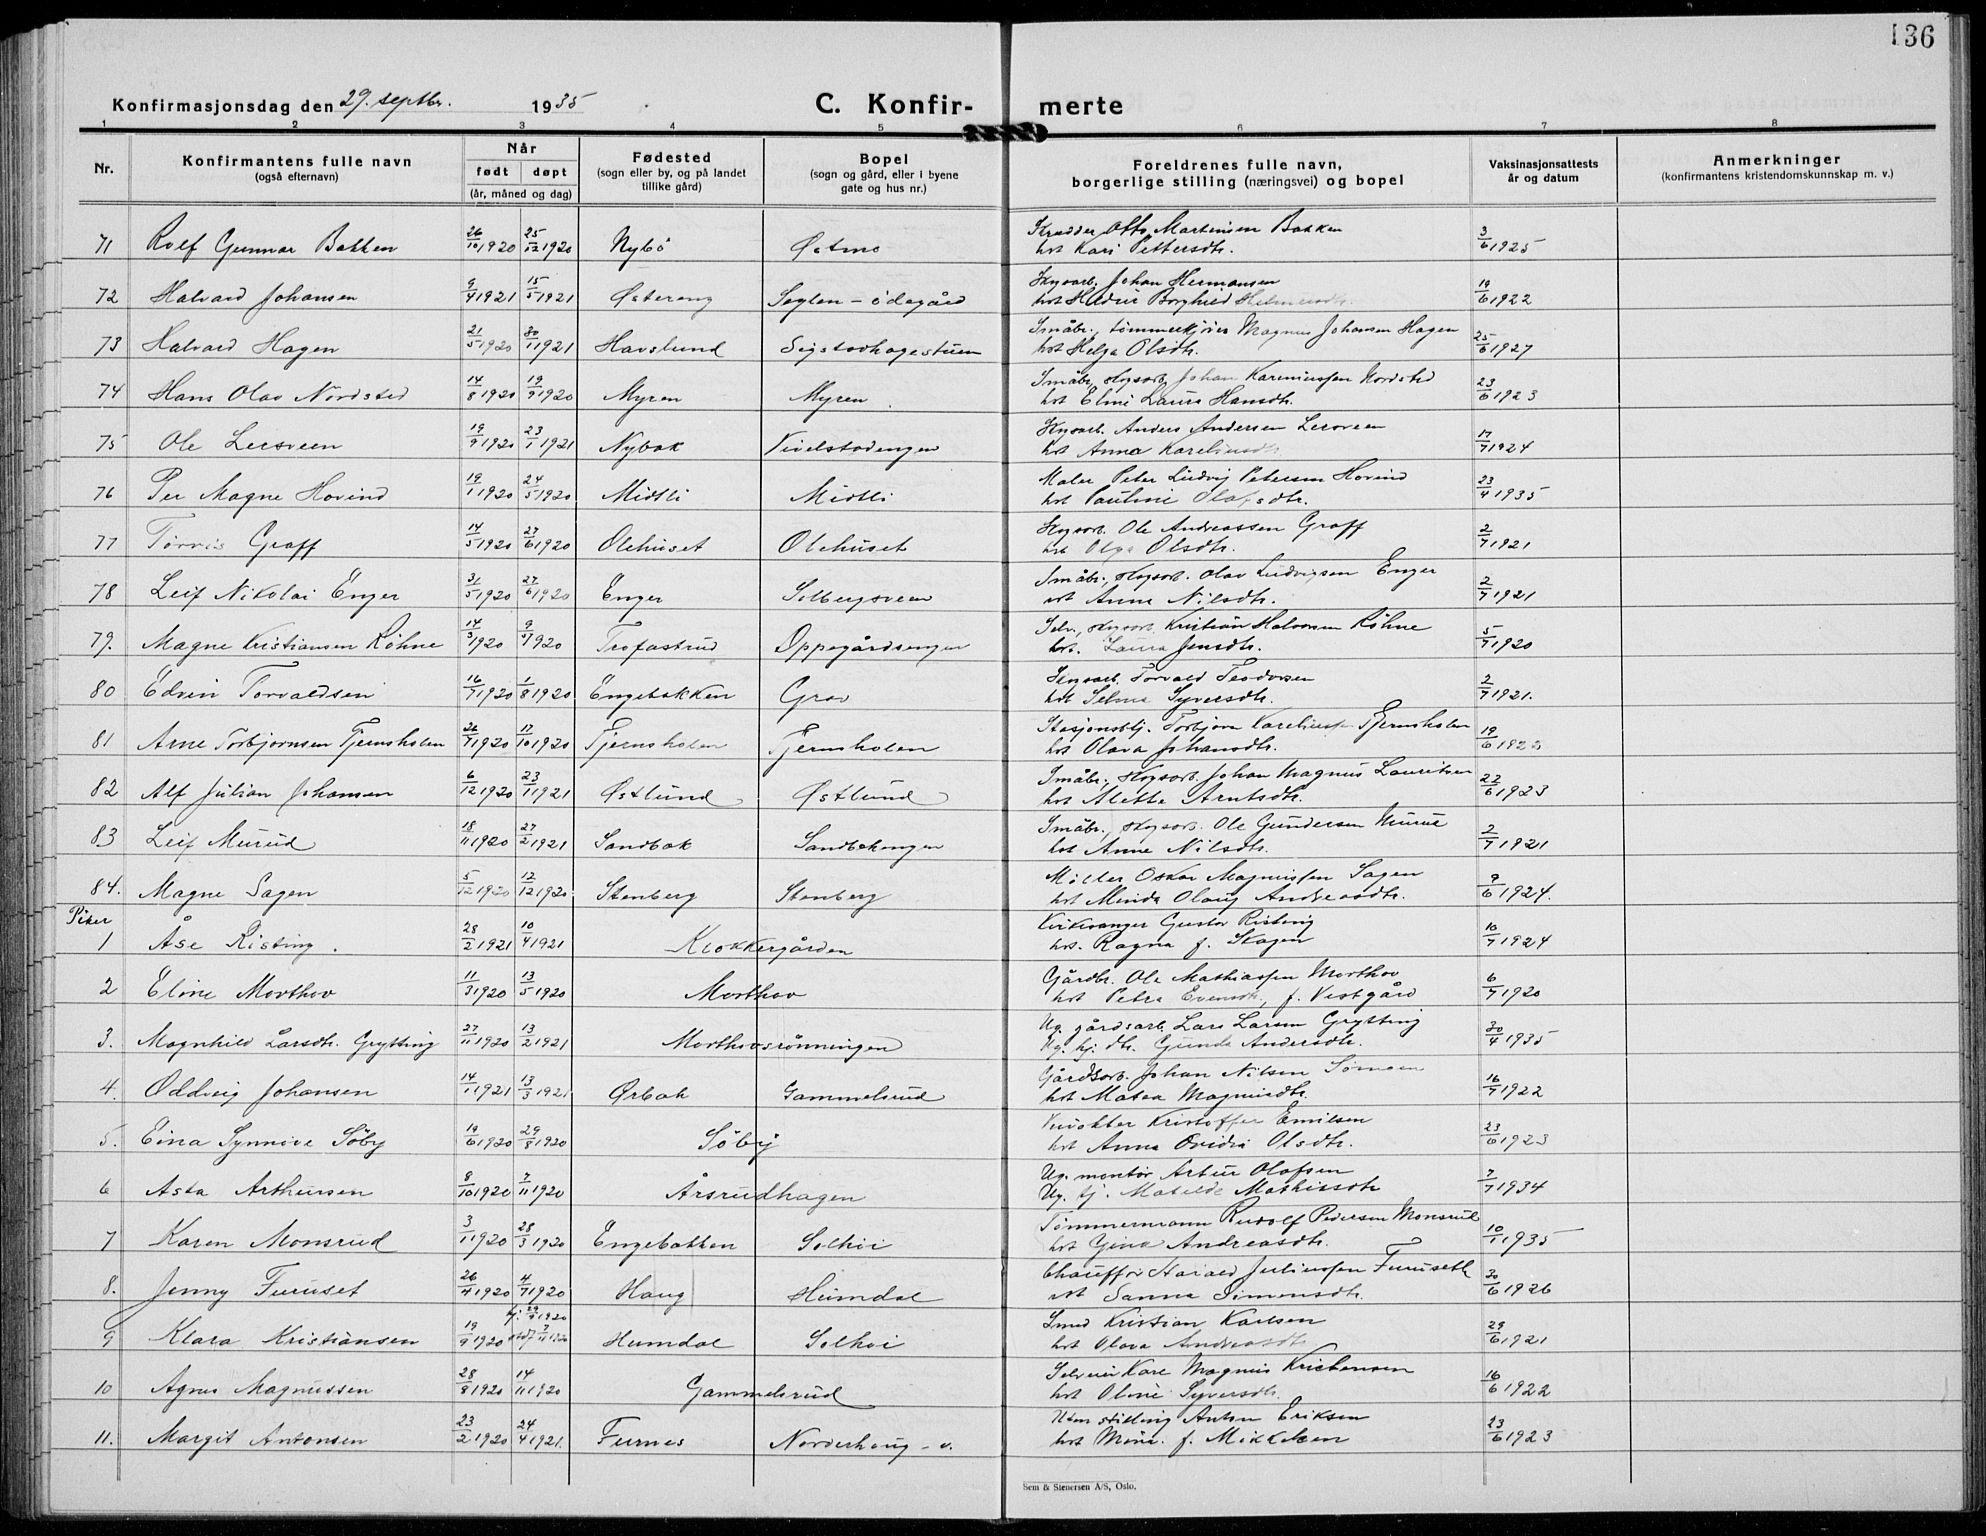 136
Konfirmasjonsdag den 29. septbr. 1935
C. Konfir- merte
1 2 3 4 5 6 7 8
Nr.
Konfirmantens fulle navn
(også efternavn)
Når
født døpt
(år, måned og dag)
Fødested
(sogn eller by, og på landet
tillike gård)
Bopel
(sogn og gård, eller i byene
gate og hus nr.)
Foreldrenes fulle navn,
borgerlige stilling (næringsvei) og bopel
Vaksinasjonsattests
år og datum
Anmerkninger
(konfirmantens kristendomskunnskap m. v.)
71 Rolf Gunnar Bakken 26/10 1920 25/12 1920 Nybö Østmo Skredder Otto Martinsen Bakken 3/6 1925
hst Kari Pettersdtr.
72 Halvard Johansen 9/4 1921 15/5 1921 Østereng Seglen - ödegård Skysarb. Johan Hermansen 19/6 1922
hst Borghild
73 Halvard Hagen 21/5 1920 30/1 1921 Havslund Sigstadhagestuen Småbr., tømmerkjører Magnus Johansen Hagen 25/6 1927
hst Helga Olsdtr.
74 Hans Olav Nordsted 14/8 1920 19/9 1920 Myren Myren Småbr., Skysarb. Johan Nordsted 23/6 1923
hst Elmi Laura Hansdtr.
75 Ole Lersveen 19/9 1920 23/1 1921 Nybak Anders Andersen Lersveen 17/7 1924
hst Anna
76 Per Magne Hovind 19/1 1920 24/5 1920 Midtli Midtli Maler Peter Ludvig Petersen Hovind 23/4 1935
hst Pauline Olafsdtr.
77 Graff 14/5 1920 27/6 1920 Olehuset Olehuset Ole Andreassen Graff 2/7 1921
hst Olga Olsdtr.
78 Leif Nikolai Enger 31/5 1920 27/6 1920 Enger Solbergsveen Småbr., Olav Ludvigsen Enger 2/7 1921
hst Anna Nilsdtr.
79. Magne Kristiansen Röhne 14/3 1920 1920 Trofastrud Oppegårdsengen Kristian Halvorsen Röhne 5/7 1920
hst. Laura Jensdtr.
80 Edvin Torvaldsen 16/7 1920 1/8 1920 Engebakken Grav Torvald Teodorsen 2/7 1921.
hst Selma Syversdtr.
81 Arne Torbjornsen Tjernsholen 26/7 1920 17/10 1920 Tjernsholen Tjernsholen Stasjonsbtj. Torbjørn Tjernsholen 19/6 1922
hst Olava Johansdtr.
82 Alf Julian Johansen 6/12 1920 23/1 1921 Østlund Østlund Småbr., Johan Magnus Lauritsen 22/6 1923
hst Alette Arntsdtr.
83 Leif Murud 18/11 1920 27/2 1921 Sandbak Sandbakengen Småbr., Ole Gundersen Murud 2/7 1921
hst Anne Nilsdtr.
84. Magne Sagen 5/12 1920 12/12 1920 Stenberg Stenberg Møller Oskar Magnussen Sagen 9/6 1924.
hst Minda Olaug Andreasdtr.
Piker
1 Åse Risting. 28/2 1921 10/4 1921 Klokkergården Kirkesanger Gustav Risting 10/7 1924
hst. Ragna f. Skogen
2 Eline Morthov 11/3 1920 13/5 1920 Morthov Gårdbr. Ole Mathiassen Morthov 6/7 1920
hst Petra Evensdtr., f. Vestgård
3. Magnhild Larsdtr. Grytting 27/11 1920 13/2 1921 Morthovsrönningen Ug. gårdsarb. Lars Larsen Grytting 30/4 1935
Ug. Gunda Andersdtr.
4. Oddveig Johansen 14/1 1921 13/3 1921 Ørbak Gammelsrud Gårdsarb. Johan Nilsen 16/7 1922
hst Matea
5. Eina Synnöve Söby 19/6 1920 29/8 1920 Söby Kristoffer Emilsen 23/6 1923
hst Anna Olsdtr.
6 Asta Arthursen 8/10 1920 7/11 1920 Årsrudhagen Ug. montör Artur Olafsen 7/7 1934
Ug. tj. Matilde Mathisdtr.
7 Karen Monsrud 3/1 1920 28/3 1920 Engebakken Solhöi Tömmermann Rudolf Pedersen Monsrud 10/1 1935
hst Gina Andreasdtr.
8. Jenny Furuset 26/4 1920 4/7 1920 Haug Heimdal Chauffør Harald Juliussen Furuseth 30/6 1926
hst Sanna Simensdtr.
9 Klara Kristiansen 19/9 1920 Heimdal Solhöi Smed Kristian Karlsen 29/6 1921
hst Olava Andreasdtr.
10 Agnes Magnussen 28/8 1920 14/11 1920 Gammelsrud Selveier Kare Magnus Kristiansen 16/6 1922
hst Oline Syversdtr.
11. Margit Antonsen 23/2 1920 24/4 1921. Furnes Norderhaug - v. Uten stilling Anton Eriksen 23/6 1923
hst Mina f. Mikkelsen
Sem & Stenersen A/S, Oslo.